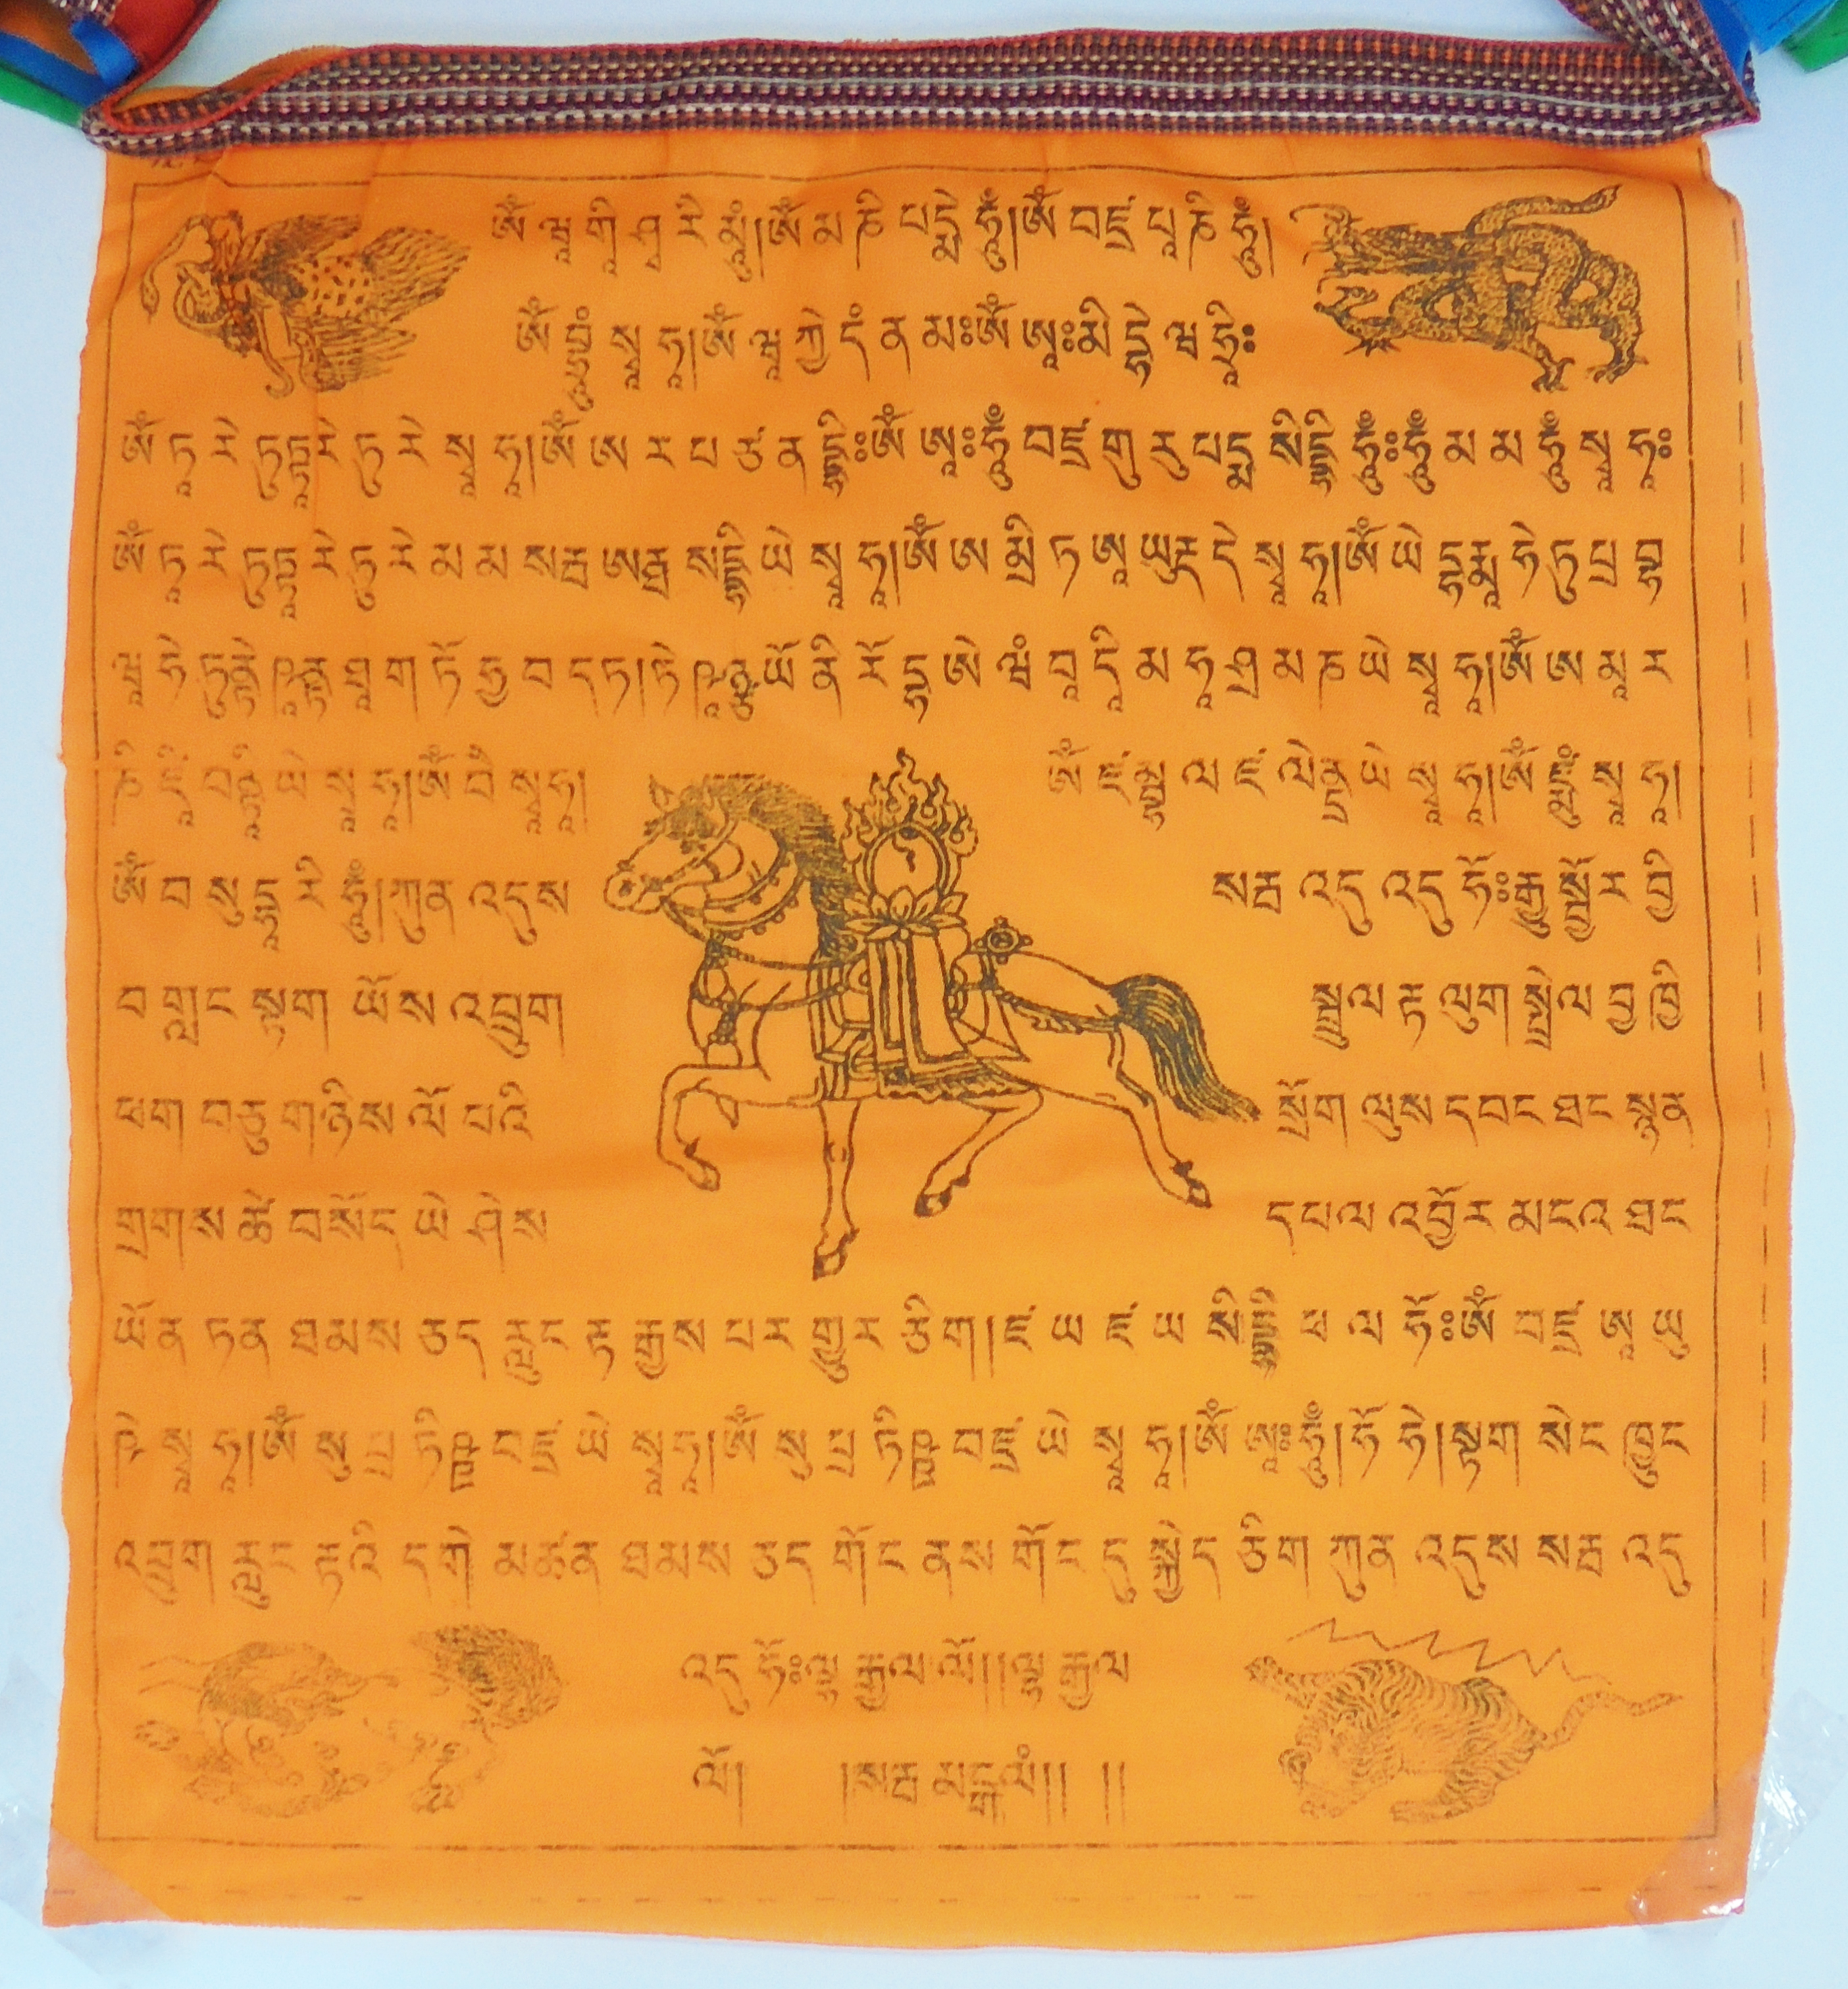 ༀ་ཝཱ་གཱི་ཤྭ་རི་མཱུྃ།ༀ་མ་ཎི་པདྨེ་ཧཱུྃ།ༀ་བཛྲ་པཱ་ཎི་ཧཱུྃ།
སྭཱ་ཧཱ།ༀ་ཝཱ་ཀྱེ་དཾ་ན་མཿ་ༀ་ཨཱཿ་མི་དྷེ་ཝ་ཧྲཱིཿ
ༀ་ཏཱ་རེ་ཏུཏྟཱརེ་ཏུ་རེ་སྭཱ་ཧཱ།ༀ་ཨ་ར་པ་ཙ་ན་དྷཱིཿ་ༀ་ཨཱཿ་ཧཱུྃ་བཛྲ་གུ་རུ་པདྨ་སིདྡྷི་ཧཱུྃཿ་ཧཱུྃ་མ་མ་ཧཱུྃ་སྭཱ་ཧཱཿ
ༀ་ཏཱ་རེ་ཏུཏྟཱ་རེ་ཏུ་རེ་མ་མ་སརྦ་ཨརྠ་སིདྡྷི་ཡེ་སྭཱ་ཧཱ།ༀ་ཨ་མྲི་ཏ་ཨཱ་ཡུརྡ་དེ་སྭཱ་ཧཱ།ༀ་ཡེ་དྷརྨཱ་ཧེ་ཏུ་པྲ་བྷ
ཝཱ་ཧེ་ཏུནྟེ་ཥཱནྟ་ཐཱ་ག་ཏོ་ཧྱ་བ་ད་ཏ།ཏེ་ཥཱཉྩ་ཡོ་ནི་རོ་དྷ་ཨེ་ཝཾ་བཱ་དཱི་མ་ཧཱ་ཤྲ་མ་ཎ་ཡེ་སྭཱ་ཧཱ།ༀ་ཨ་མཱ་ར
ཎི་ཛཱི་བནྟཱི་ཡེ་སྭཱ་ཧཱ།ༀ་བཻ་སྭཱཧཱ། ༀ་ཛཾ་བྷ་ལ་ཛ་ལེནྡྲ་ཡེ་སྭཱ་ཧཱ།ༀ་སྭཱ་ཧཱ།
ༀ་བ་སུ་དྷཱ་རི་ཧཱུྃ།ཀུན་འདུས སརྦ་འདུ་འདུ་ཧོཿ་རྒྱུ་སྦྱོར་བྱི
བ་གླང་སྟག་ཡོས་འབྲུག སྦྲུལ་རྟ་ལུག་སྤྲེལ་བྱ་ཁྱི
ཕག་བཅུ་གཉིས་ལོ་པའི སྲོག་ལུས་དབང་ཐང་སྙན
གྲགས་ཚེ་བསོད་ཡེ་ཤེས དཔལ་འབྱོར་མངའ་ཐང
ཡོན་ཏན་ཐམས་ཅད་རླུང་རྟ་རྒྱས་པར་གྱུར་ཅིག།ཛ་ཡ་ཛ་ཡ་སིདྡྷི་ཕ་ལ་ཧོཿ་ༀ་བཛྲ་ཨཱ་ཡུ
ཥེ་སྭཱ་ཧཱ།ༀ་སུ་པྲ་ཏིཥྛ་བཛྲ་ཡེ་སྭཱ་ཧཱ།ༀ་སུ་པྲ་ཏིཥྛ་བཛྲ་ཡེ་སྭཱ་ཧཱ།ༀ་ཨཱཿ་ཧཱུྃ།ཧོ་ཧེ།སྟག་སེང་ཁྱུང
འབྲུག་རླུང་རྟའི་དགེ་མཚན་ཐམས་ཅད་གོང་ནས་གོང་དུ་སྐྱེད་ཅིག་ཀུན་འདུས་སརྦ་འདུ
འདུ་ཧོཿ་ལྷ་རྒྱལ་ལོ།།ལྷ་རྒྱལ
ལོ། །སརྦ་མངྒལཾ།། །།